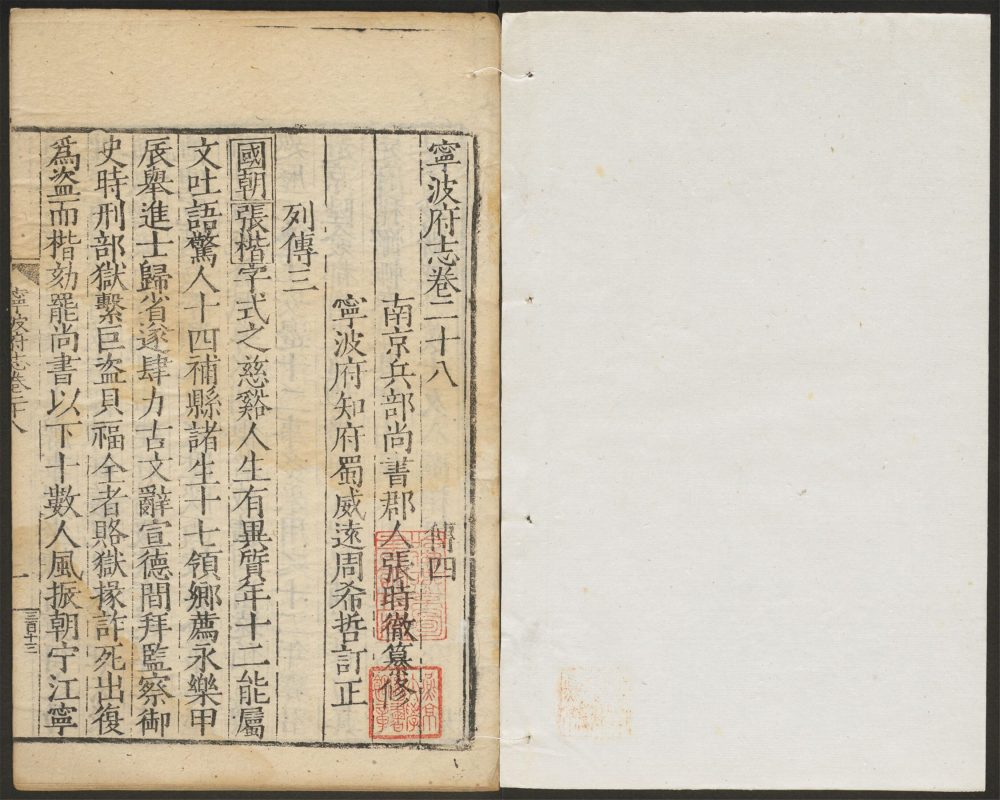 寧波府志卷二十八　傳四
南京兵部尚書郡人張時徹纂修
寧波府知府蜀威遠周希哲訂正
列傳三
國朝張楷字式之慈谿人生有異質年十二能屬
文吐語驚人十四補縣諸生十七領鄉薦永樂甲
辰舉進士歸省遂肆力古文辭宣德間拜監察御
史時刑部獄繫巨盜貝福全者賂獄掾詐死出復
爲盜而楷劾罷尚書以下十數人風振朝宁江寧
寧波府志卷二十八
一
三百十三